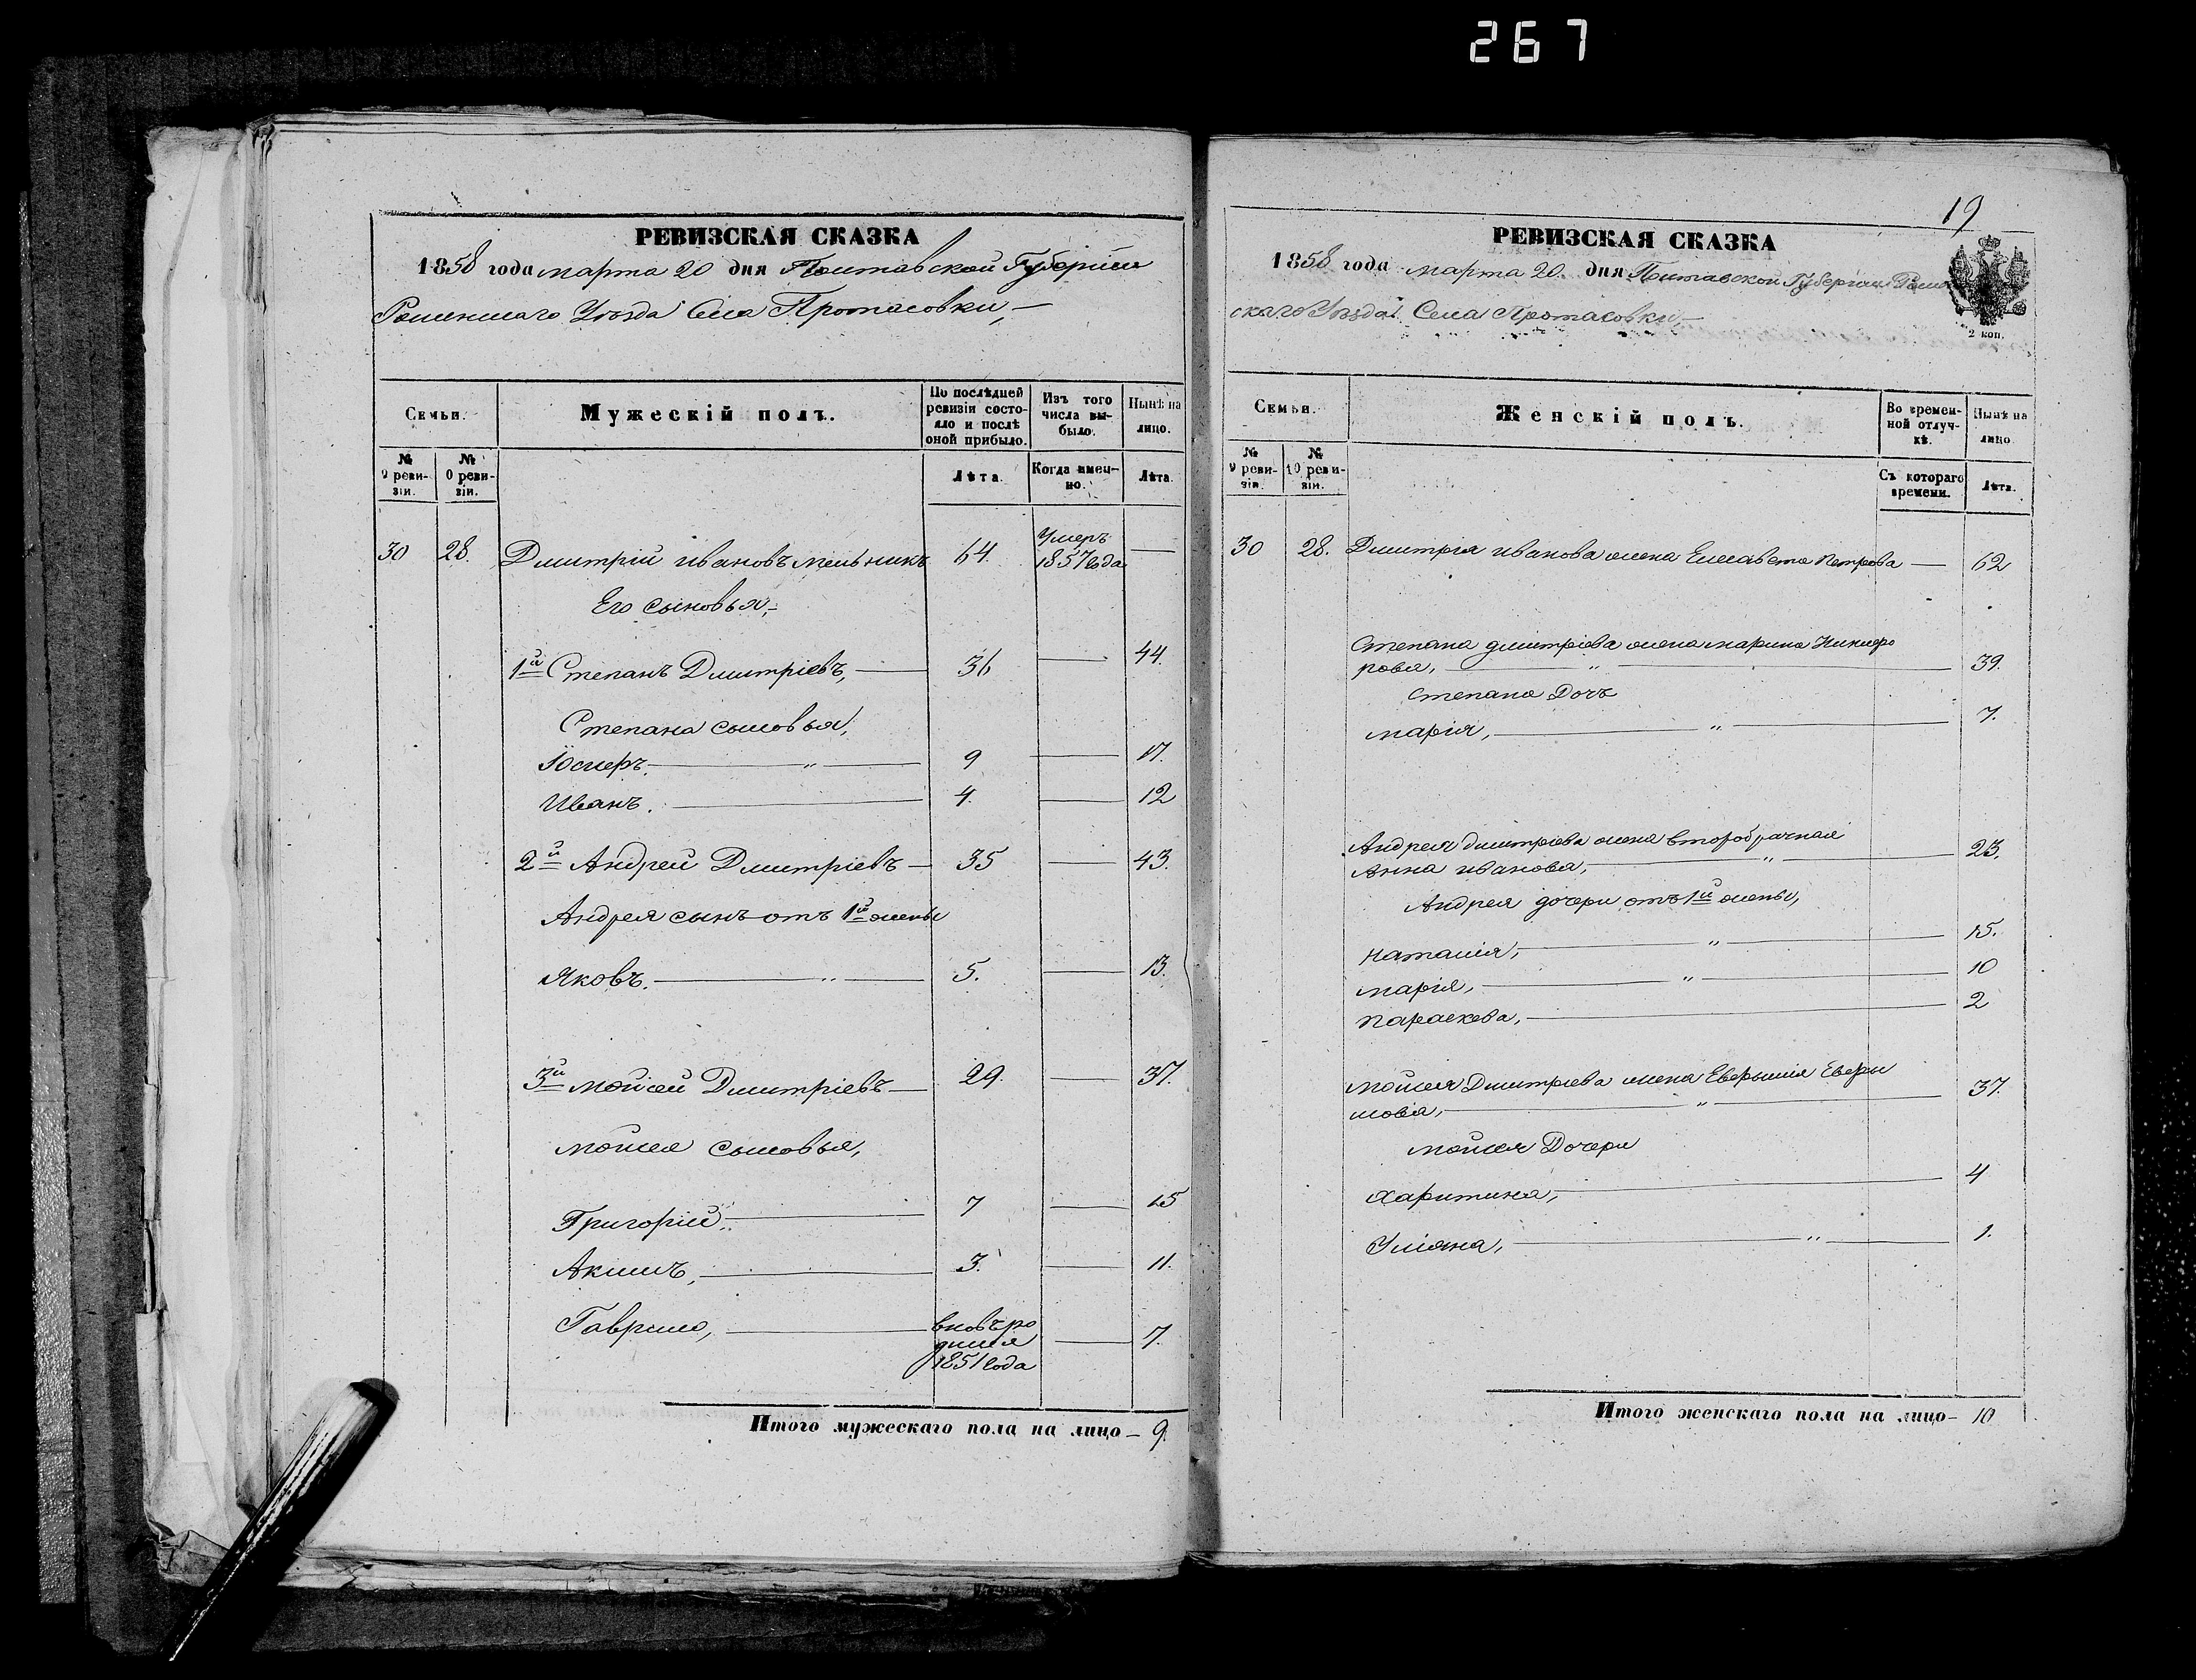 267
РЕВИЗСКАЯ СКАЗКА
1858 года марта 20 дня Полтавской Губерніи
Роменскаго Уѣзда Села Протасовки,
Семьи.
Мужескій полъ.
По послѣдней ревизіи состояло и послѣ оной прибыло.
Изъ того числа выбыло.
Нынѣ на лицо.
№ 9 ревизіи.
№ 10 ревизіи.
Лѣта.
Когда именно.
Лѣта.
30 28. Дмитрій ивановъ мельникъ 64. Умеръ 1857 года —
Его сыновья,
1й Степанъ Дмитріевъ, — 36 — 44.
Степана сыновья,
— " — 9 — 17.
Иванъ. — 4. — 12
2й Андрей Дмитріевъ — 35 — 43.
Андрея сынъ отъ 1й жены
Яковъ. — " — 5. — 13.
3й мойсей Дмитріевъ — 29. — 37.
мойсея сыновья,
Григорій. — 7 — 15
Акимъ, — 3. — 11.
Гаврило, — вновь родился 1851 года — 7.
Итого мужескаго пола на лицо — 9.
19
РЕВИЗСКАЯ СКАЗКА
1858 года марта 20. дня Полтавской Губерніи Ромен
скаго Уѣзда Села Протасовки,
2 коп.
Семьи.
Женскій полъ.
Во временной отлучкѣ.
Нынѣ на лицо.
№ 9 ревизіи.
№ 10 ревизіи.
Съ котораго времени.
Лѣта.
30 28. Дмитрія иванова жена Елисавета Петрова — 62
Степана дмитріева жена марина Никифо
рова, — " — 39.
Степана Дочь
марія, — " — 7.
Андрея дмитріева жена второбрачная
Анна иванова, — " — 23.
Андрея дочери отъ 1й жены,
наталія, — " — 15.
марія, — " — 10
параскева, — 2
мойсея Дмитріева жена
— " — 37.
мойсея Дочери
харитина, — 4
Уліяна, — " — 1.
Итого женскаго пола на лицо — 10